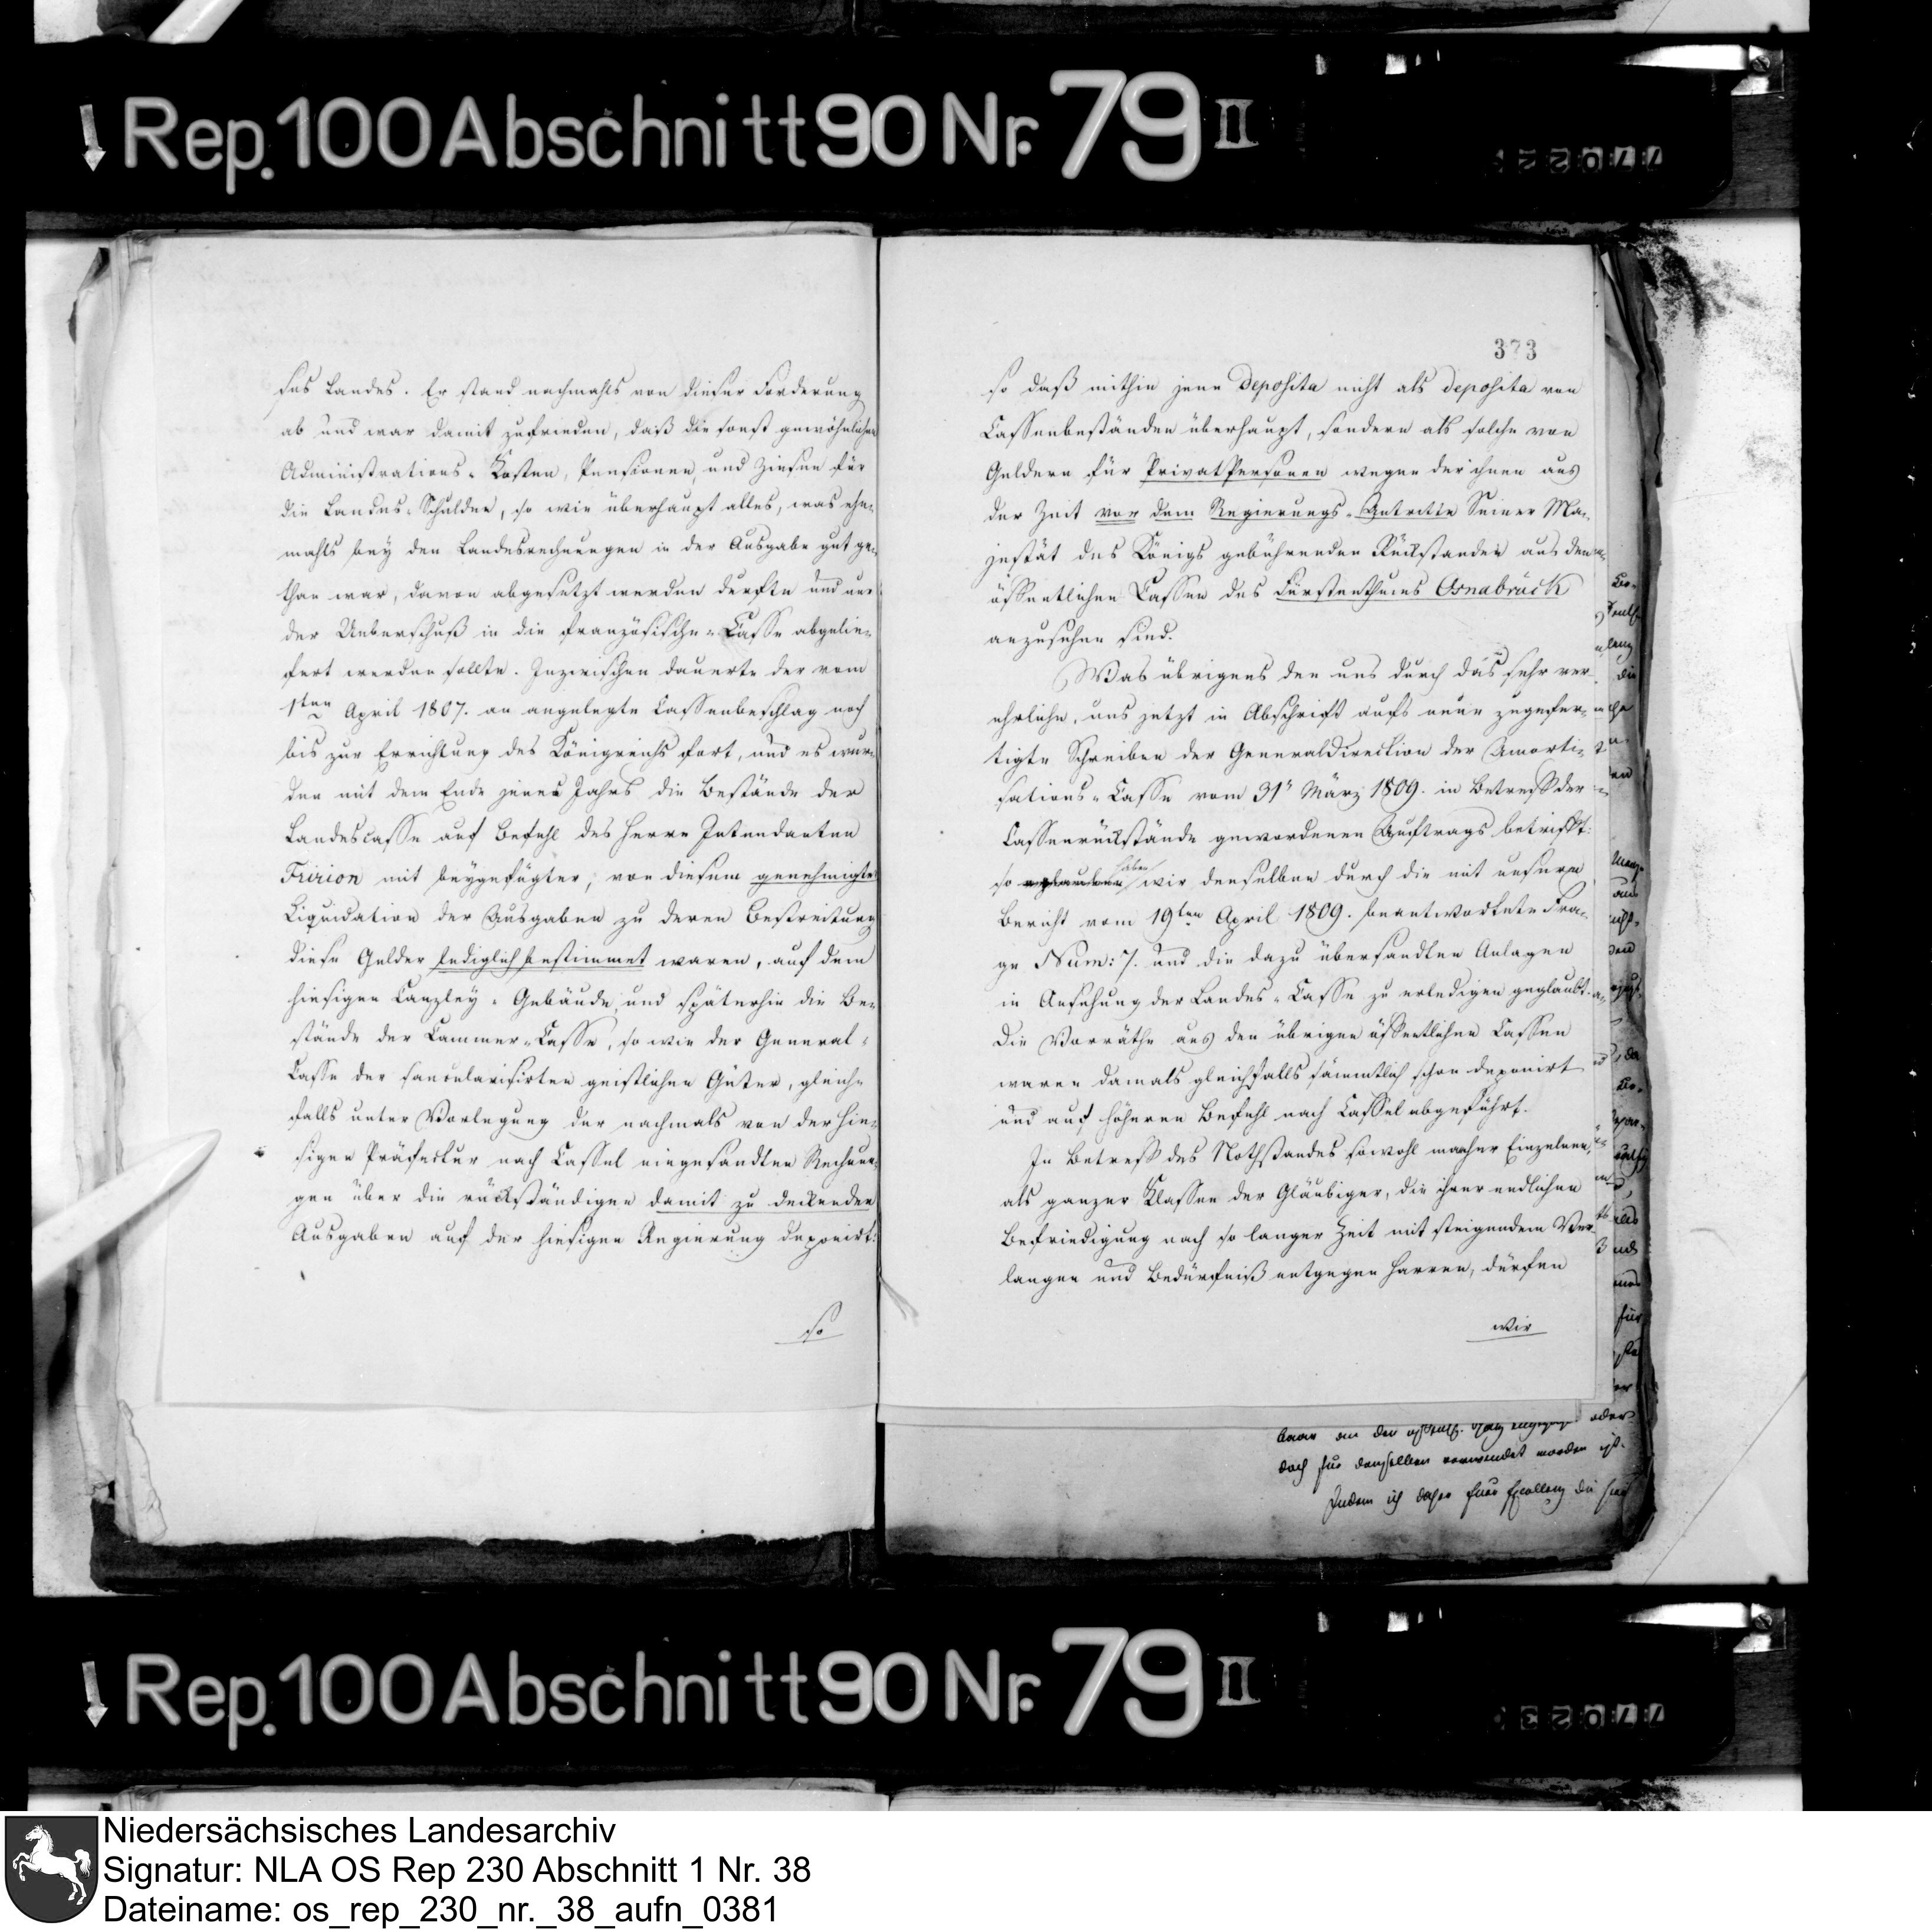 Rep. 100 Abschnitt 90 Nr. 79 II
ses Landes. Er stand nachmahls von dieser Forderung
ab und war damit zufrieden, daß die sonst gewöhnlichen
Administrations-Kosten, Pensionen, und Zinsen für
die Landes-Schulden, so wie überhaupt alles, was ehe-
mahls bey den Landesrechnungen in der Ausgabe gut ge-
than war, davon abgesetzt werden durfte und nur
der Ueberschuß in die französische-Casse abgelie-
fert werden sollte. Inzwischen dauerte der vom
1ten April 1807. an angelegte Cassenbeschlag noch
bis zur Errichtung des Königreichs fort, und es wur-
den mit dem Ende jenes Jahrs die Bestände der
Landescasse auf Befehl des Herrn Intendanten
Fririon mit beygefügter, von diesem genehmigter
Liquidation der Ausgaben zu deren Bestreitung
diese Gelder lediglich bestimmet waren, auf dem
hiesigen Canzley-Gebäude, und späterhin die Be-
stände der Cammer-Casse, so wie der General-
Casse der saecularisirten geistlichen Güter, gleich-
falls unter Vorlegung der nachmals von der hie-
sigen Präfectur nach Cassel eingesandten Rechnun-
gen über die rückständigen damit zu deckenden
Ausgaben auf der hiesigen Regierung deponirt:
so
373
so daß mithin jene Deposita nicht als deposita von
Cassenbeständen überhaupt, sondern als solche von
Geldern für PrivatPersonen wegen der ihnen aus
der Zeit vor dem Regierungs-Antritte Seiner Ma-
jestät des Königs gebührenden Rückstanden aus den
öffentlichen Cassen des Fürstenthums Osnabrück
anzusehen sind.
Was übrigens den uns durch das sehr ver-
ehrliche, uns jetzt in Abschrift aufs neue zugefer-
tigte Schreiben der Generaldirection der Amorti-
sations-Casse vom 31n März 1809. in Betreff der
Cassenrückstände gewordenen Auftrags betrifft:
so haben wir denselben durch die mit unserm
Bericht vom 19ten April 1809. beantwortete Fra-
ge Num: 7. und die dazu übersandten Anlagen
in Ansehung der Landes-Casse zu erledigen geglaubt.
Die Vorräthe aus den übrigen öffentlichen Cassen
waren damals gleichfalls sämmtlich schon deponirt
und auf höheren Befehl nach Cassel abgeführt.
In Betreff des Nothstandes sowohl mancher Einzelnen,
als ganzer Klassen der Gläubiger, die ihrer endlichen
Befriedigung nach so langer Zeit mit steigendem Ver-
langen und Bedürfniß entgegen harren, dürfen
wir
oder
doch für denselben verwendet worden ist.
Indem ich daher Euer Excellenz die
Rep. 100 Abschnitt 90 Nr. 79 II
Niedersächsisches Landesarchiv
Signatur: NLA OS Rep 230 Abschnitt 1 Nr. 38
Dateiname: os_rep_230_nr._38_aufn_0381